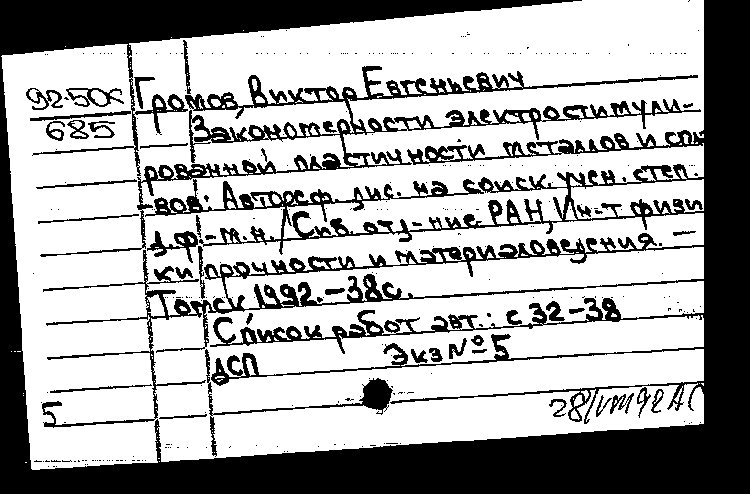 92-50с
685
Громов, Виктор Евгеньевич
Закономерности электростимули-
рованной пластичности металлов и спла
-вов: Автореф. дис. на соиск. учен. степ.
д.ф.-м.н. / Сиб. отд-ние РАН, Ин-т физи
ки прочности и материаловедения. —
Томск 1992. — 38с.
Список работ авт.: с. 32-38
ДСП Экз № 5
5